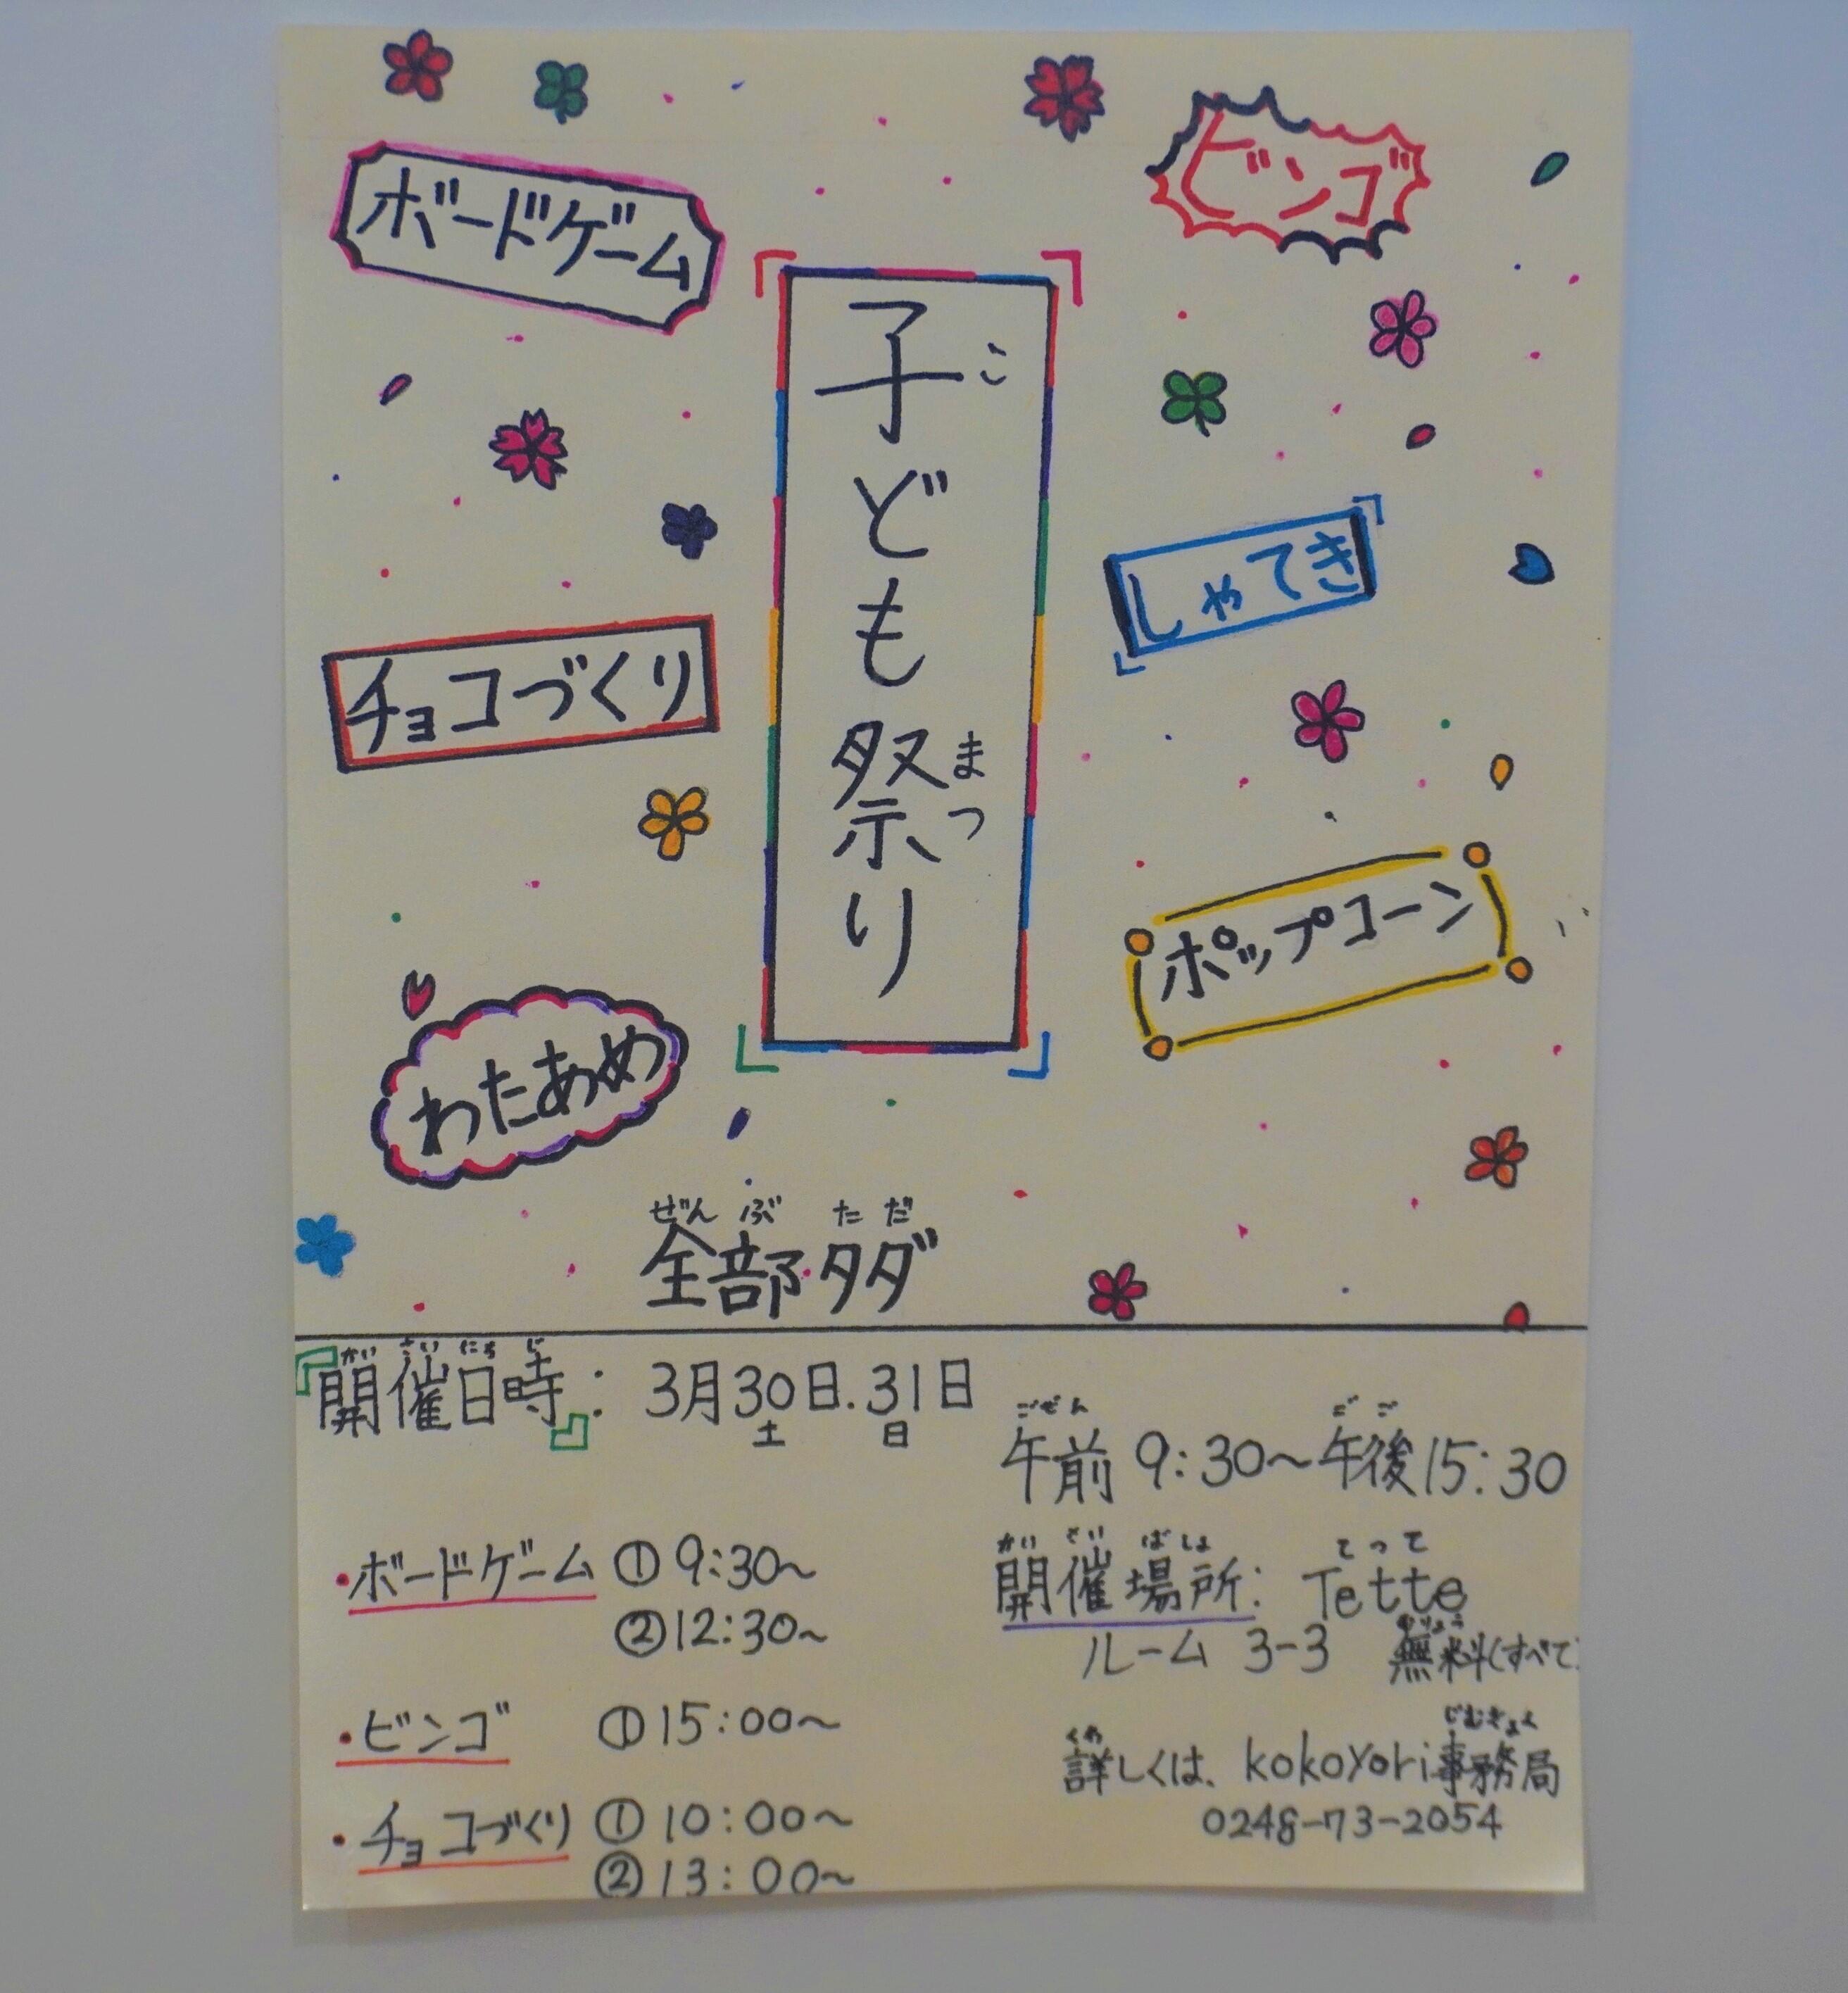 ボードゲーム
ビンゴ
子ども祭り
こ
まつ
しゃてき
チョコづくり
ポップコーン
わたあめ
ぜんぶ ただ
全部タダ
かいさいにちじ
開催日時: 3月30日.31日
土 日
ごぜん ごご
午前 9:30~午後15:30
・ボードゲーム ①9:30~
②12:30~
・ビンゴ ①15:00~
・チョコづくり ①10:00~
②13:00~
かい さい ばしょ てって
開催場所: Tette
むりょう
ルーム 3-3 無料(すべて)
くわ じむきょく
詳しくは、kokoyori事務局
0248-73-2054